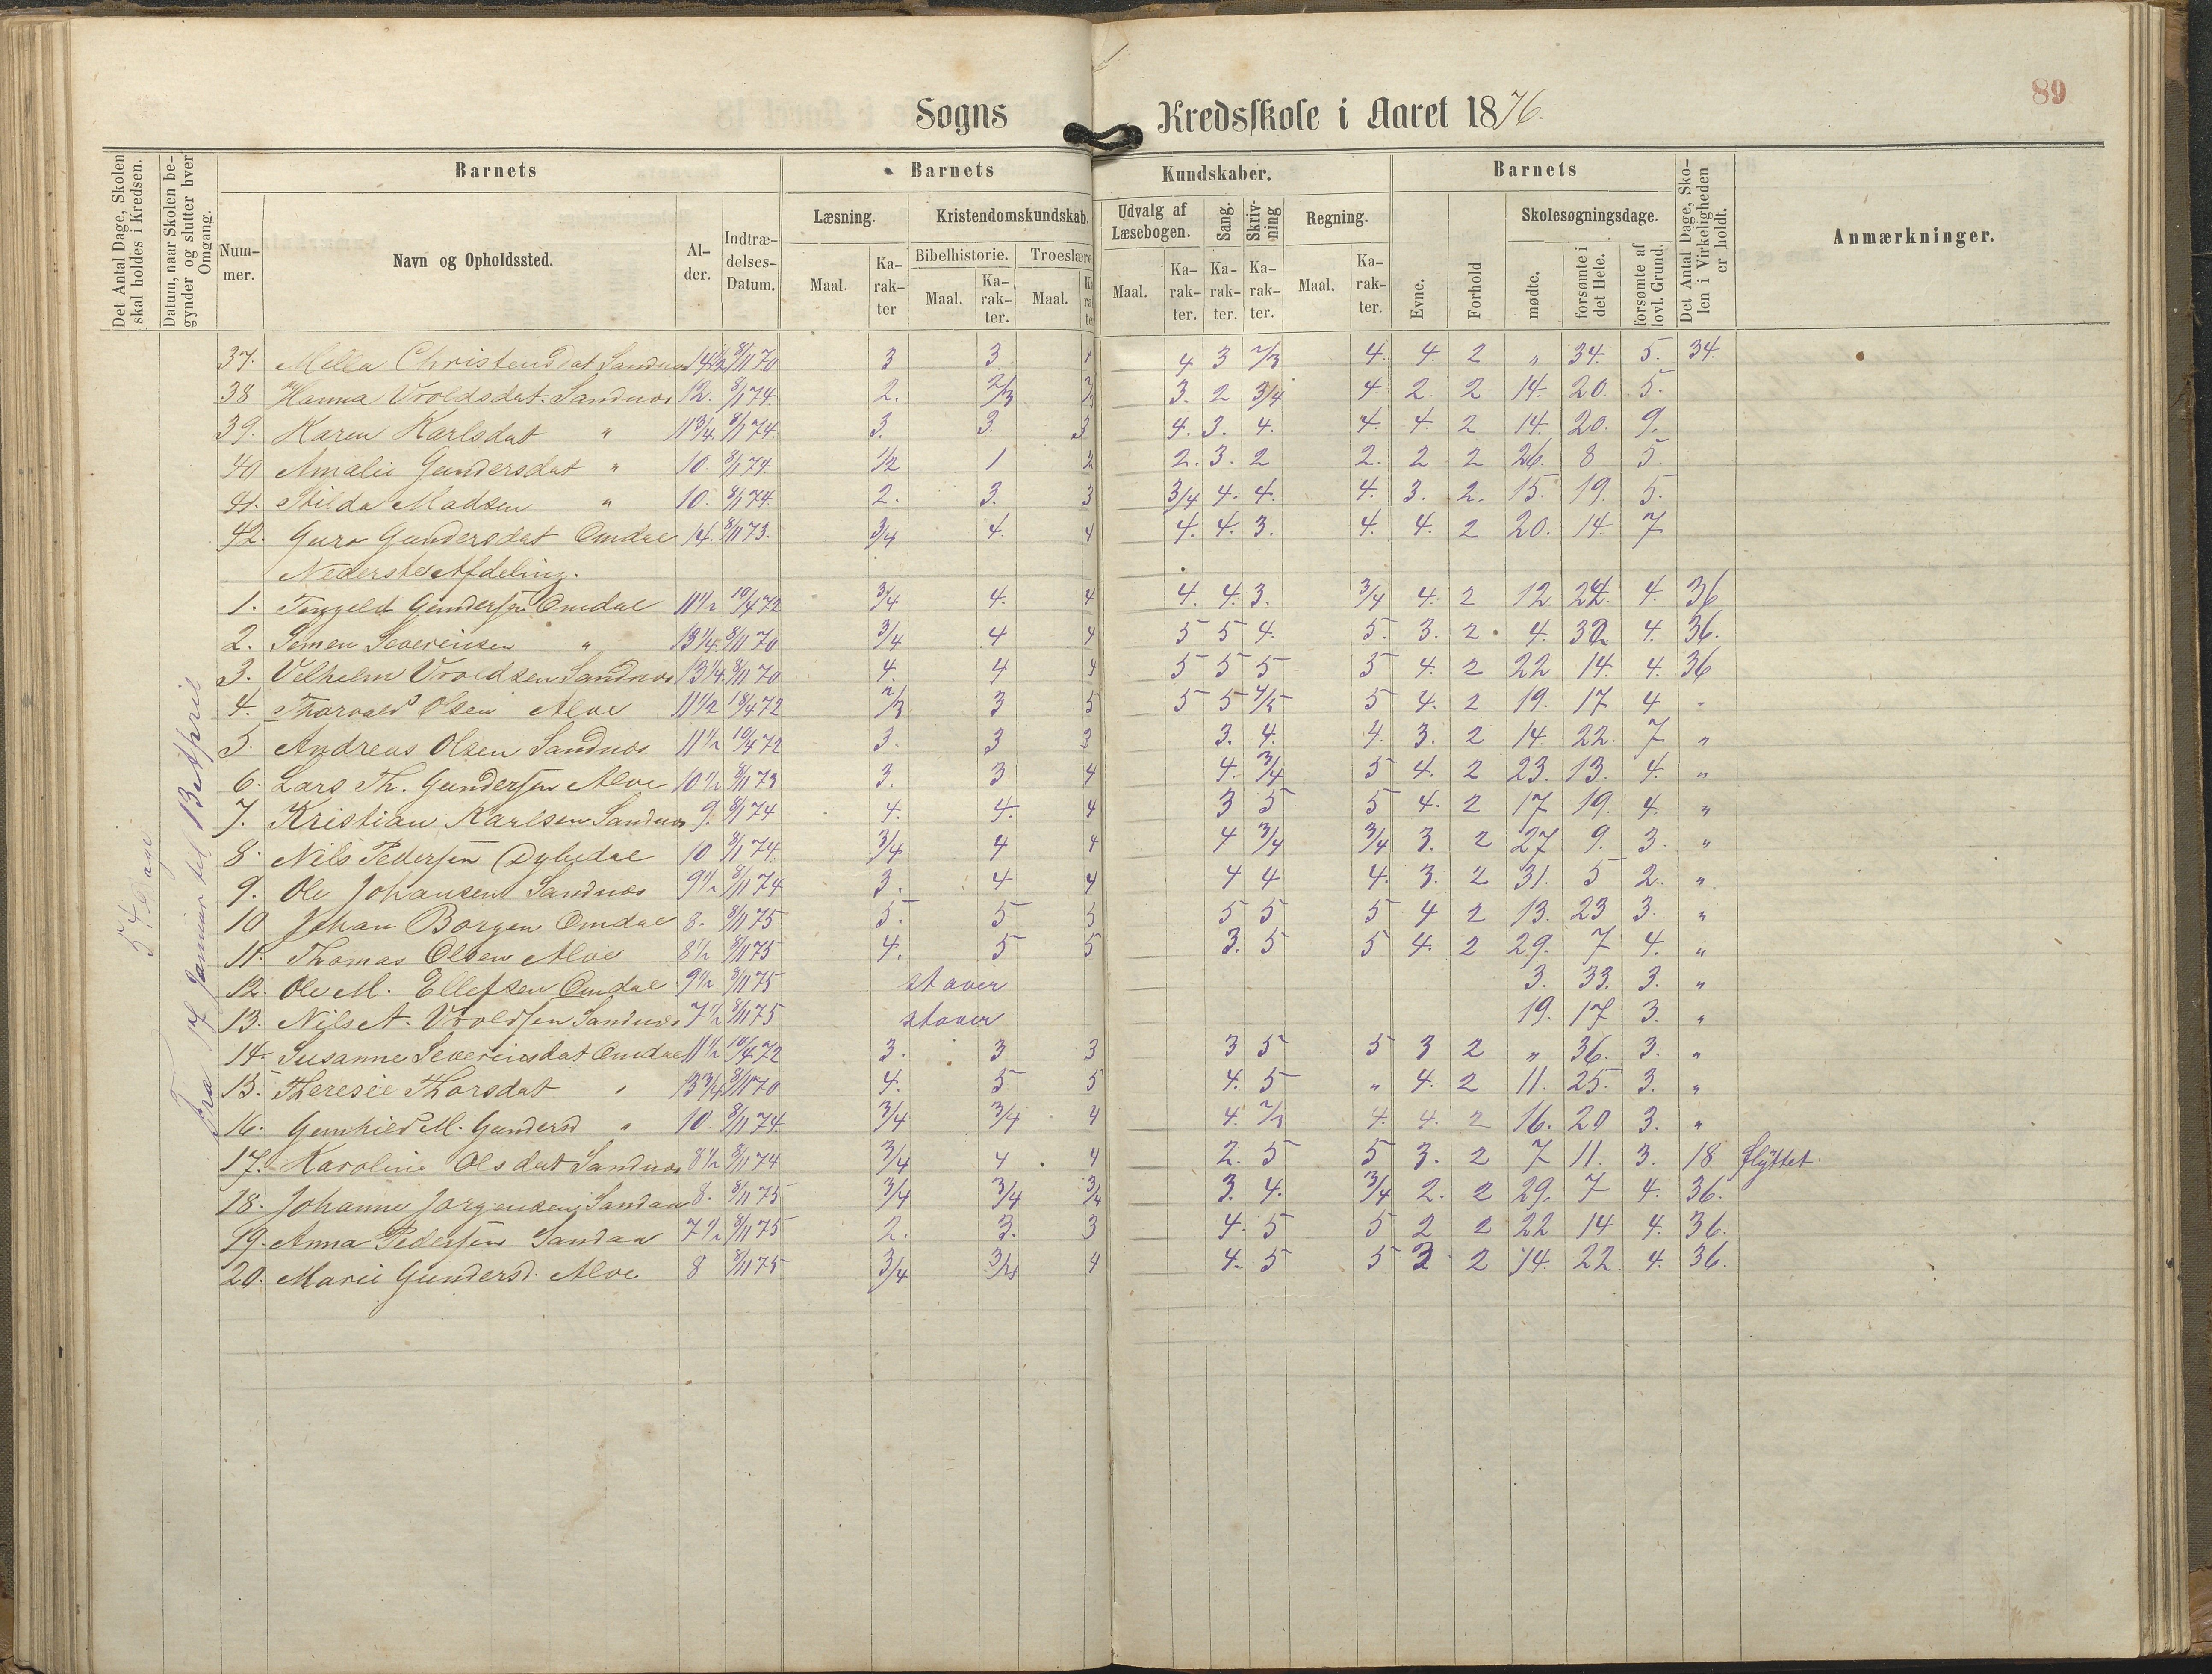 89
Sogns Kredsskole i Aaret 1876.
Det Antal Dage, Skolen skal holdes i Kredsen.
Datum, naar Skolen begynder og slutter hver Omgang.
Barnets
Nummer.
Navn og Opholdssted.
Alder.
Indtrædelses-Datum.
Barnets Kundskaber.
Læsning.
Maal. Karakter
Kristendomskundskab.
Bibelhistorie. Troeslære
Maal. Karakter. Maal.
Udvalg af Læsebogen.
Maal. Karakter.
Sang. Karakter.
Skrivning Karakter.
Regning.
Maal. Karakter.
Barnets
Evne. Forhold
Skolesøgningsdage.
mødte. forsømte i det Hele. forsømte af lovl. Grund.
Det Antal Dage, Skolen i Virkeligheden er holdt.
Anmærkninger.
54 Dage
Fra 17 Januar til 13et April
37. Mella Christensdat Sandnes 14 1/2 8/11 70 3 3 4 4 3 2/3 4. 4. 2 " 34. 5. 34.
38 Hanna Vroldsdat. Sandnes 12. 8/1 74. 2. 2/3 2/3 3. 2 3/4 4. 2. 2 14. 20. 5.
39. Karen Karlsdat " 11 3/4 8/1 74. 3. 3. 3 4. 3. 4. 4. 4. 2 14. 20. 9.
40 Amalie Gundersdat " 10. 8/1 74. 1/2 1 2 2. 3. 2 2. 2 2 26. 8 5.
41. Hilda Madsen " 10. 8/1 74. 2. 3. 3 3/4 4. 4. 4. 3. 2. 15. 19. 5.
42. Guro Gundersdat Omdal 14. 8/11 73. 3/4 4. 4 4. 4. 3. 4. 4. 2 20. 14. 7
Nederste Afdeling.
1. Tenggeld Gundersen Omdal 11 1/2 10/4 72 3/4 4. 4 4. 4. 3. 3/4 4. 2 12. 24. 4. 36
2. Semen Severinsen " 13 1/4 8/11 70 3/4 4 4 5 5 4. 5. 3. 2. 4. 32 4. 36.
3. Velhelm Vroldsen Sandnes 13 1/4 8/11 70 4. 4 4 5 5 5 5 4. 2 22 14. 4. 36
4. Thorvald Olsen Alve 11 1/2 10/4 72 2/3 3 3 5 5 4/5 5 4. 2 19. 17 4 "
5. Andreas Olsen Sandnes 11 1/2 10/4 72 3. 3 3 3. 4. 4. 3. 2 14. 22. 7 "
6. Lars Th. Gundersen Alve 10 1/2 8/11 73 3. 3 4 4. 3/4 5 4. 2 23. 13. 4. "
7. Kristian Karlsen Sandnes 9. 8/1 74 4. 4. 4 3 5 5 4. 2 17 19. 4. "
8. Nils Pedersen Dybdal 10 8/1 74. 3/4 4 4 4 3/4 3/4 3. 2 27 9. 3. "
9. Ole Johansen Sandnes 9 1/2 8/11 74 3. 4 4 4 4 4. 3. 2 31. 5 2. "
10 Johan Borgen Omdal 8. 8/11 75 5. 5 5 5 5 5 4 2 13. 23 3. "
11. Thomas Olsen Alve 8 1/2 8/11 75 4. 5 5 3. 5 5 4. 2 29. 7 4. "
12. Ole M. Ellefsen Omdal 9 1/2 8/11 75 staver 3. 33. 3. "
13. Nils A. Vroldsen Sandnes 7 1/2 8/11 75 staver 19. 17 3. "
14. Susanne Severinsdat Omdal 11 1/2 10/4 72 3. 3 3 3 5 5 3 2 " 36. 3. "
15. Theresie Thorsdat " 13 3/4 8/11 70 4. 5 5 4. 5 " 4. 2 11. 25. 3. "
16. Gunhild M. Gundersd " 10. 8/11 74. 3/4 3/4 4 4. 2/3 4. 4. 2 16. 20 3. "
17. Karoline Olsdat Sandnes 8 1/2 8/11 74 3/4 4 4 2. 5 5 3. 2 7 11. 3. 18 flyttet
18. Johanne Jørgensen Sandaa 8. 8/11 75 3/4 3/4 3/4 3. 4. 3/4 2. 2 29. 7 4. 36.
19. Anna Pedersen Sandaa 7 1/2 8/11 75 2. 3. 3 4. 5 5 2 2 22 14 4. 36.
20. Marie Gundersd. Alve 8 8/11 75 3/4 3/4 4 4. 5 5 3 2 14. 22. 4. 36.